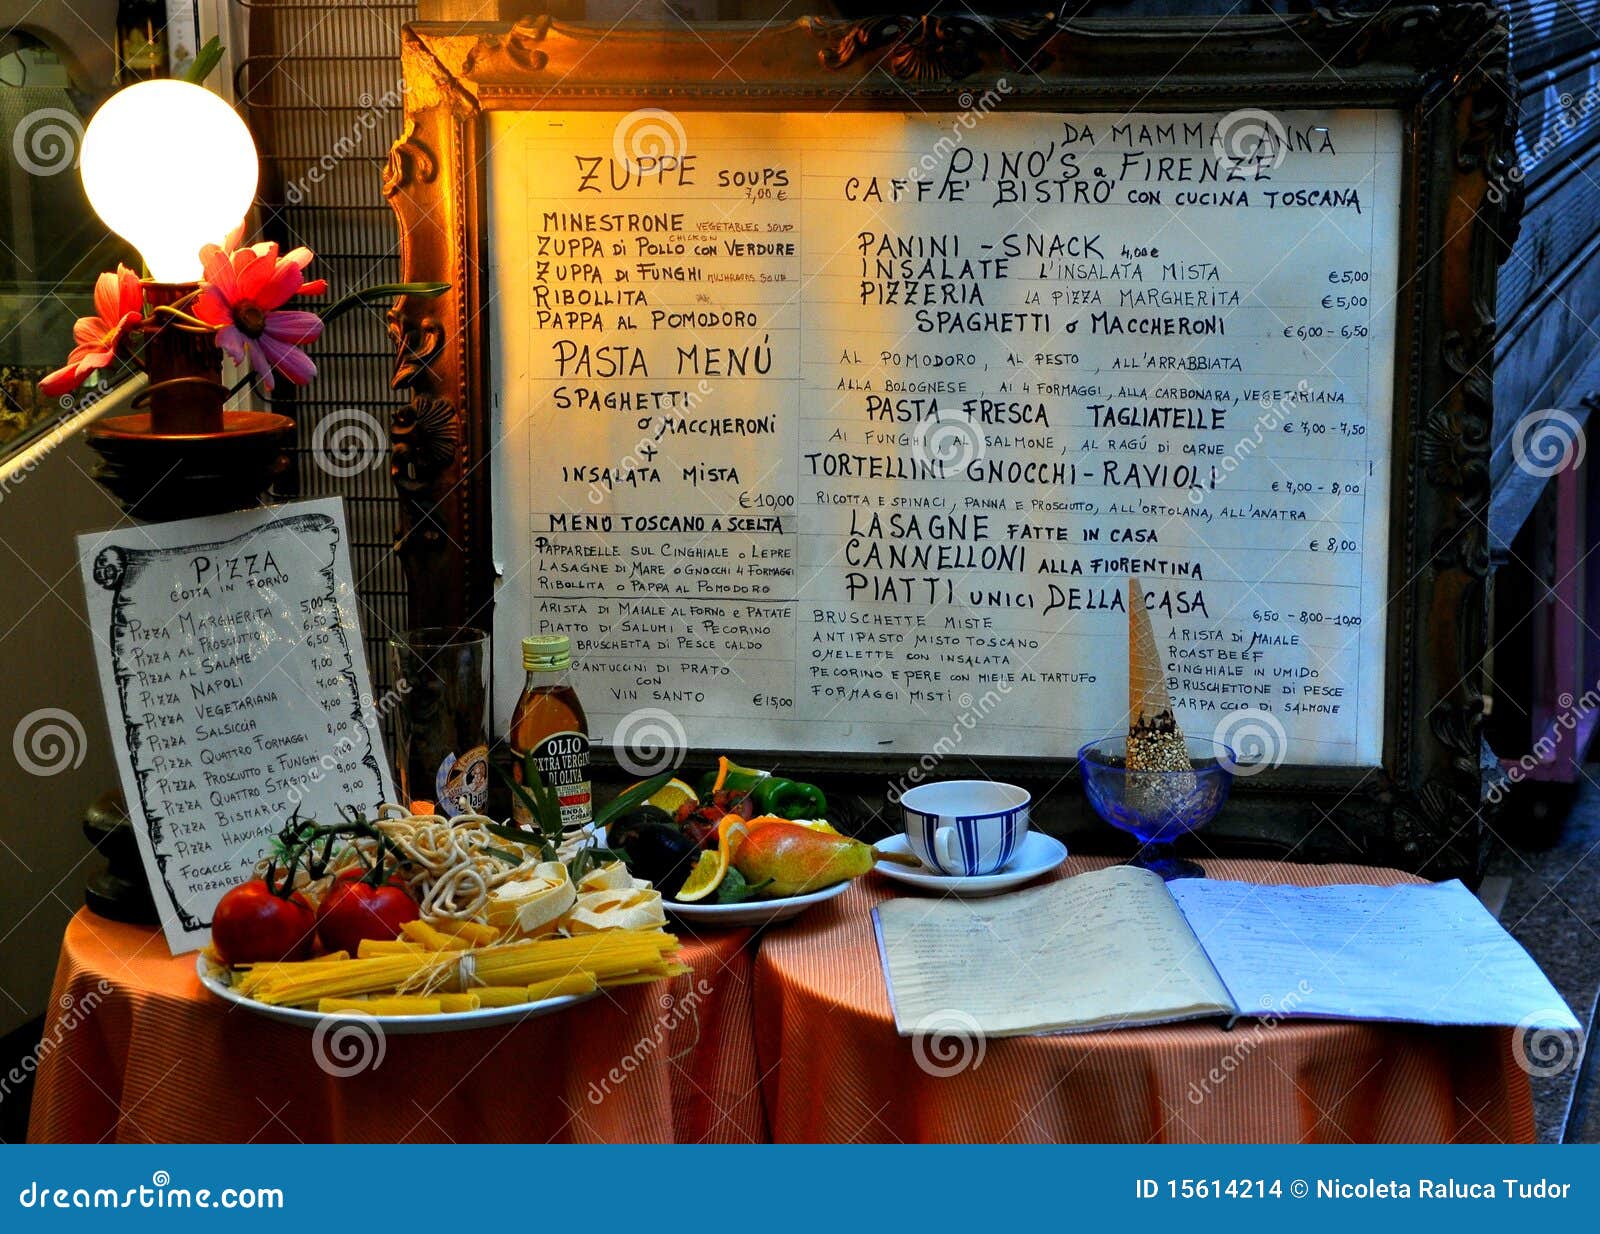 ZUPPE SOUPS
7,00 €
MINESTRONE VEGETABLES SOUP
CHICKEN
ZUPPA DI POLLO CON VERDURE
ZUPPA DI FUNGHI MUSHROOMS SOUP
RIBOLLITA
PAPPA AL POMODORO
PASTA MENÚ
SPAGHETTI
O MACCHERONI
+
INSALATA MISTA
€ 10,00
MENU TOSCANO A SCELTA
PAPPARDELLE SUL CINGHIALE O LEPRE
LASAGNE DI MARE O GNOCCHI 4 FORMAGGI
RIBOLLITA O PAPPA AL POMODORO
ARISTA DI MAIALE AL FORNO E PATATE
PIATTO DI SALUMI E PECORINO
BRUSCHETTA DI PESCE CALDO
CANTUCCINI DI PRATO
CON
VIN SANTO € 15,00
DA MAMMA ANNA
PINO'S a FIRENZE
CAFFE' BISTRO' CON CUCINA TOSCANA
PANINI - SNACK 4,00 €
INSALATE L'INSALATA MISTA € 5,00
PIZZERIA LA PIZZA MARGHERITA € 5,00
SPAGHETTI O MACCHERONI € 6,00 - 6,50
AL POMODORO, AL PESTO, ALL'ARRABBIATA
ALLA BOLOGNESE, AI 4 FORMAGGI, ALLA CARBONARA, VEGETARIANA
PASTA FRESCA TAGLIATELLE € 7,00 - 7,50
AI FUNGHI AL SALMONE, AL RAGÚ DI CARNE
TORTELLINI - GNOCCHI - RAVIOLI € 7,00 - 8,00
RICOTTA E SPINACI, PANNA E PROSCIUTTO, ALL'ORTOLANA, ALL'ANATRA
LASAGNE FATTE IN CASA € 8,00
CANNELLONI ALLA FIORENTINA
PIATTI UNICI DELLA CASA
6,50 - 8,00 - 10,00
BRUSCHETTE MISTE
ANTIPASTO MISTO TOSCANO
OMELETTE CON INSALATA
PECORINO E PERE CON MIELE AL TARTUFO
FORMAGGI MISTI
ARISTA DI MAIALE
ROASTBEEF
CINGHIALE IN UMIDO
BRUSCHETTONE DI PESCE
CARPACCIO DI SALMONE
PIZZA
COTTA IN FORNO
PIZZA MARGHERITA 5,00
PIZZA AL PROSCIUTTO 6,50
PIZZA AL SALAME 6,50
PIZZA NAPOLI 7,00
PIZZA VEGETARIANA 7,00
PIZZA SALSICCIA 7,00
PIZZA QUATTRO FORMAGGI 8,00
PIZZA PROSCIUTTO E FUNGHI
PIZZA QUATTRO STAGIONI 9,00
PIZZA BISMARCK 9,00
PIZZA HAWAIAN
FOCACCE AL
OLIO
EXTRA VERGINE
DI OLIVA
dreamstime.com
ID 15614214 © Nicoleta Raluca Tudor